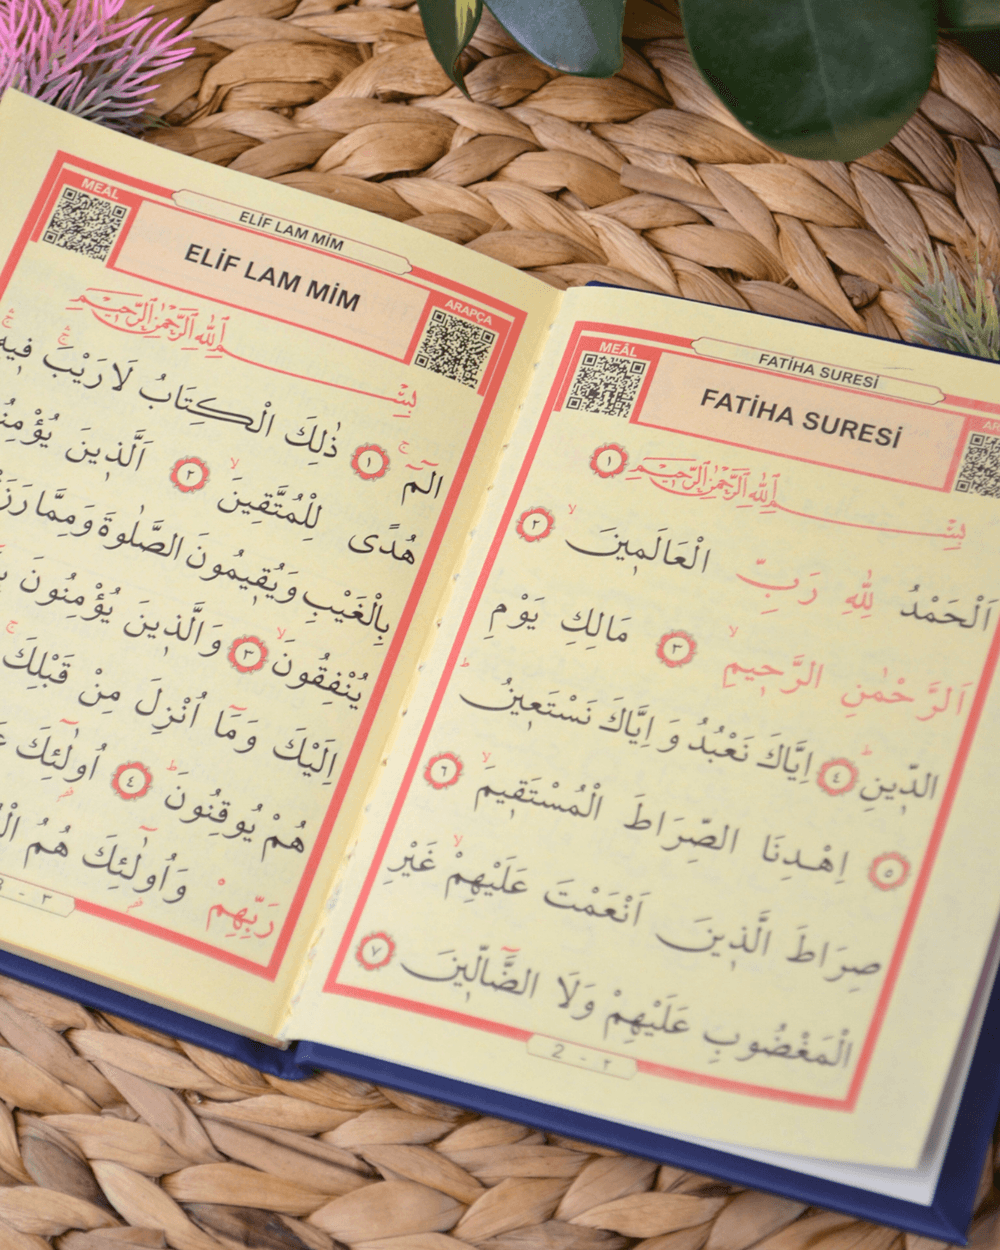 FATİHA SURESİ
MEÂL
FATİHA SURESİ
بِسْمِ اللّٰهِ الرَّحْمٰنِ الرَّح۪يمِ ١
اَلْحَمْدُ لِلّٰهِ رَبِّ الْعَالَم۪ينَۙ ٢
اَلرَّحْمٰنِ الرَّح۪يمِۙ ٣ مَالِكِ يَوْمِ
الدّ۪ينِۜ ٤ اِيَّاكَ نَعْبُدُ وَ اِيَّاكَ نَسْتَع۪ينُۜ
٥ اِهْدِنَا الصِّرَاطَ الْمُسْتَق۪يمَۙ ٦
صِرَاطَ الَّذ۪ينَ اَنْعَمْتَ عَلَيْهِمْۙ غَيْرِ
الْمَغْضُوبِ عَلَيْهِمْ وَلَا الضَّٓالّ۪ينَ ٧
2 - ٢
ELİF LAM MİM
MEÂL
ARAPÇA
ELİF LAM MİM
بِسْمِ اللّٰهِ الرَّحْمٰنِ الرَّح۪يمِ
الٓمٓۚ ١ ذٰلِكَ الْكِتَابُ لَا رَيْبَۚۛ ف۪يهِۚۛ
هُدًى لِلْمُتَّق۪ينَۙ ٢ اَلَّذ۪ينَ
بِالْغَيْبِ وَيُق۪يمُونَ الصَّلٰوةَ وَمِمَّا
يُنْفِقُونَۙ ٣ وَالَّذ۪ينَ يُؤْمِنُونَ
اِلَيْكَ وَمَٓا اُنْزِلَ مِنْ قَبْلِكَۚ
هُمْ يُوقِنُونَۜ ٤ اُو۬لٰٓئِكَ
رَبِّهِمْ وَاُو۬لٰٓئِكَ هُمُ
3 - ٣